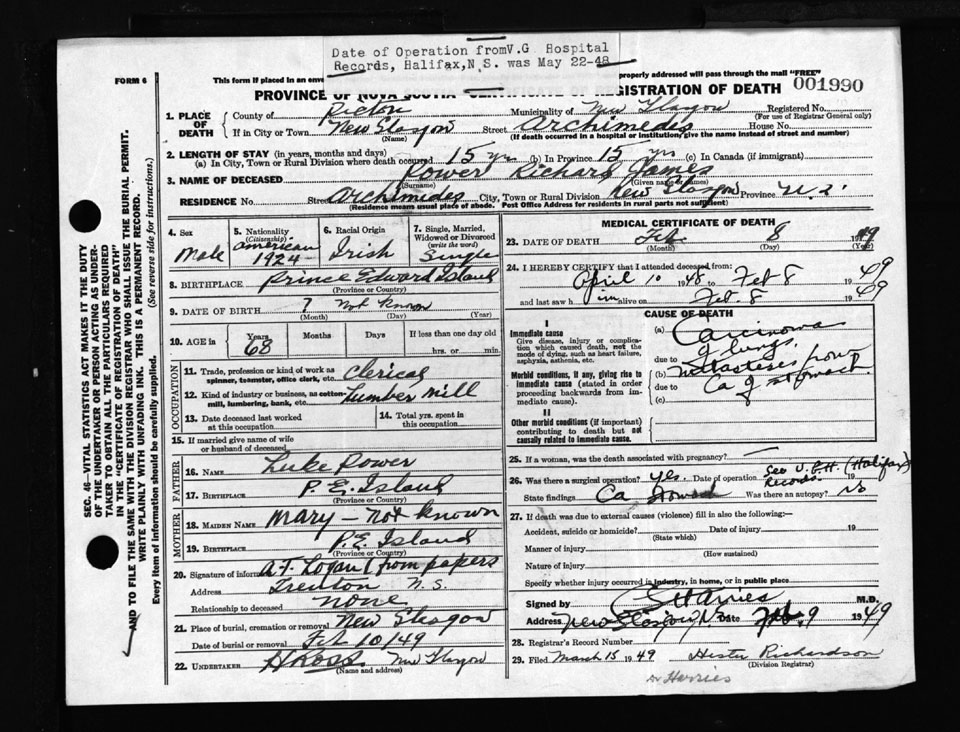 Date of Operation from V.G. Hospital
Records, Halifax, N.S. was May 22-48
FORM 6
This form if placed in an enve
properly addressed will pass through the mail "FREE"
001990
PROVINCE OF NOVA SCOTIA CERTIFICATE OF REGISTRATION OF DEATH
1. PLACE OF DEATH
County of Pictou Municipality of New Glasgow Registered No.
(For use of Registrar General only)
If in City or Town New Glasgow Street Archimedes House No.
(Name) (If death occurred in a hospital or institution, give the name instead of street and number)
2. LENGTH OF STAY (in years, months and days)
(a) In City, Town or Rural Division where death occurred 15 yrs (b) In Province 15 yrs (c) In Canada (if immigrant)
3. NAME OF DECEASED Power Richard James
(Surname) (Given name or names)
RESIDENCE No. Street Archimedes City, Town or Rural Division New Glasgow Province N.S.
(Residence means usual place of abode. Post Office Address for residents in rural parts not sufficient)
4. Sex Male
5. Nationality (Citizenship) American 1924-
6. Racial Origin Irish
7. Single, Married, Widowed or Divorced (write the word) Single
8. BIRTHPLACE Prince Edward Island
(Province or Country)
9. DATE OF BIRTH ? Not Known
(Month) (Day) (Year)
10. AGE in Years 68 Months Days If less than one day old
hrs. or min.
OCCUPATION
11. Trade, profession or kind of work as spinner, teamster, office clerk, etc. Clerical
12. Kind of industry or business, as cotton-mill, lumbering, bank, etc. Lumber Mill
13. Date deceased last worked at this occupation
14. Total yrs. spent in this occupation
15. If married give name of wife or husband of deceased
FATHER
16. Name Luke Power
17. Birthplace P. E. Island
(Province or Country)
MOTHER
18. MAIDEN NAME Mary - Not Known
19. BIRTHPLACE P.E. Island
(Province or Country)
20. Signature of informant A.F. Logan (from papers
Address Trenton N.S.
Relationship to deceased none
21. Place of burial, cremation or removal New Glasgow
Date of burial or removal Feb 10/49
22. UNDERTAKER H Ross New Glasgow
(Name and address)
MEDICAL CERTIFICATE OF DEATH
23. DATE OF DEATH Feb 8 1949
(Month) (Day) (Year)
24. I HEREBY CERTIFY that I attended deceased from:
April 10 1948 to Feb 8 1949
and last saw him alive on Feb. 8 1949
CAUSE OF DEATH
I
Immediate cause
Give disease, injury or complication which caused death, not the mode of dying, such as heart failure, asphyxia, asthenia, etc.
(a) Carcinoma of lungs.
due to
Morbid conditions, if any, giving rise to immediate cause (stated in order proceeding backwards from immediate cause).
(b) Metastases from
due to Ca of stomach.
(c)
II
Other morbid conditions (if important) contributing to death but not causally related to immediate cause.
25. If a woman, was the death associated with pregnancy?
26. Was there a surgical operation? yes. Date of operation See V.G.H. (Halifax) Records.
State findings Ca Stomach Was there an autopsy? No
27. If death was due to external causes (violence) fill in also the following:
Accident, suicide or homicide? Date of injury 19
(State which)
Manner of injury
(How sustained)
Nature of injury
Specify whether injury occurred in industry, in home, or in public place
Signed by M.D.
Address New Glasgow N.S. Date Feb. 9 1949
28. Registrar's Record Number
29. Filed March 15 1949 Hester Richardson
(Division Registrar)
Dr Harries
SEC. 46—VITAL STATISTICS ACT MAKES IT THE DUTY
OF THE UNDERTAKER OR PERSON ACTING AS UNDER-
TAKER TO OBTAIN ALL THE PARTICULARS REQUIRED
IN THE "CERTIFICATE OF REGISTRATION OF DEATH"
AND TO FILE THE SAME WITH THE DIVISION REGISTRAR WHO SHALL ISSUE THE BURIAL PERMIT.
WRITE PLAINLY WITH UNFADING INK—THIS IS A PERMANENT RECORD.
Every item of information should be carefully supplied. (See reverse side for instructions.)